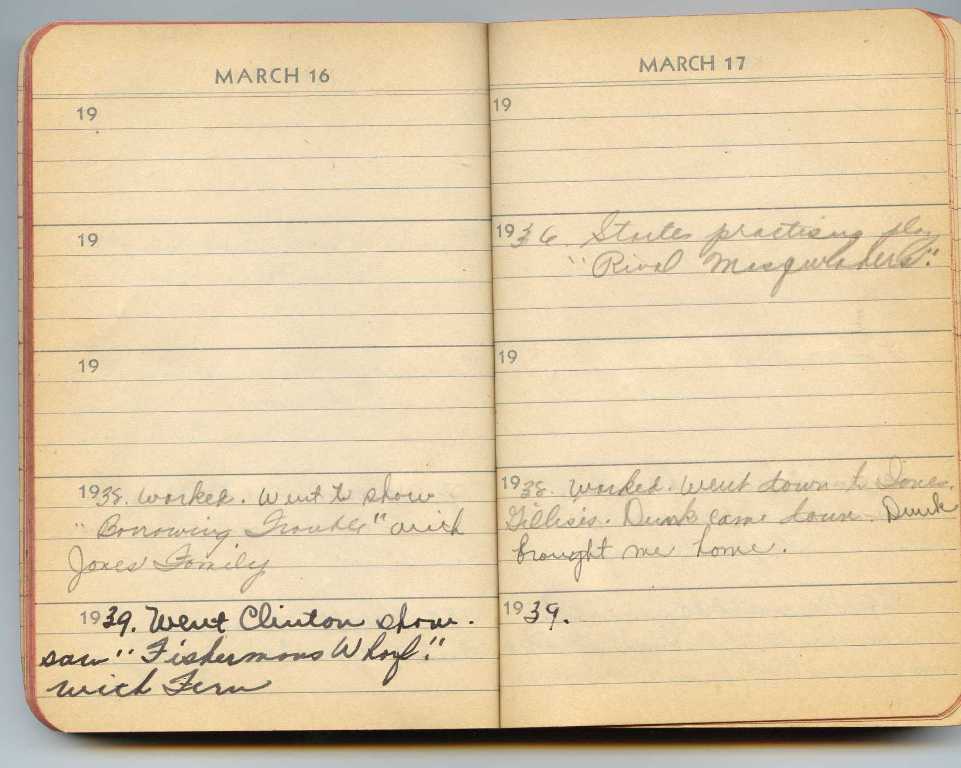 MARCH 16
19
19
19
1938. Worked. Went to show
"Borrowing Trouble" with
Jones Family
1939. Went Clinton show.
saw "Fishermans Wharf."
with Fern
MARCH 17
19
1936. Started practising play
"Rival
19
1938. Worked. Went down to
Gillisis. Dunk came down. Dunk
brought me home.
1939.